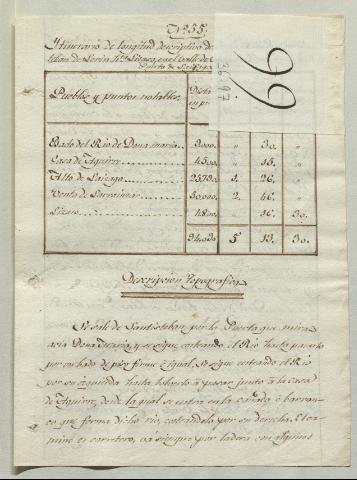 Nº 55.
Itinerario de longitud descriptivo de
99
Pueblos y puntos notables.
Vado del Rio de Dona maria. 9.000. " 30. "
Casa de Ytquirre 4500. " 15. "
Alto de Laizaga 25780. 1. 26. "
Venta de Larrainzar 50.000. 2. 46. "
Lizaso 4800. " 16. 30.
94.080 5 13. 30.
Descripcion topografica
Se sale de Santisteban por la Puerta que mira
acia Dona Maria, y se sigue costeando el Rio hasta pasarlo
por un bado de piso firme e igual, se sigue costeando el Rio
por su izquierda hasta bolverlo a pasar junto a la casa
de Ytquirre, desde la qual se entra en la cañada o barran-
co que forma dicho rio, costeandolo por su derecha. El ca-
mino es carretero, va siempre por ladera con algunos